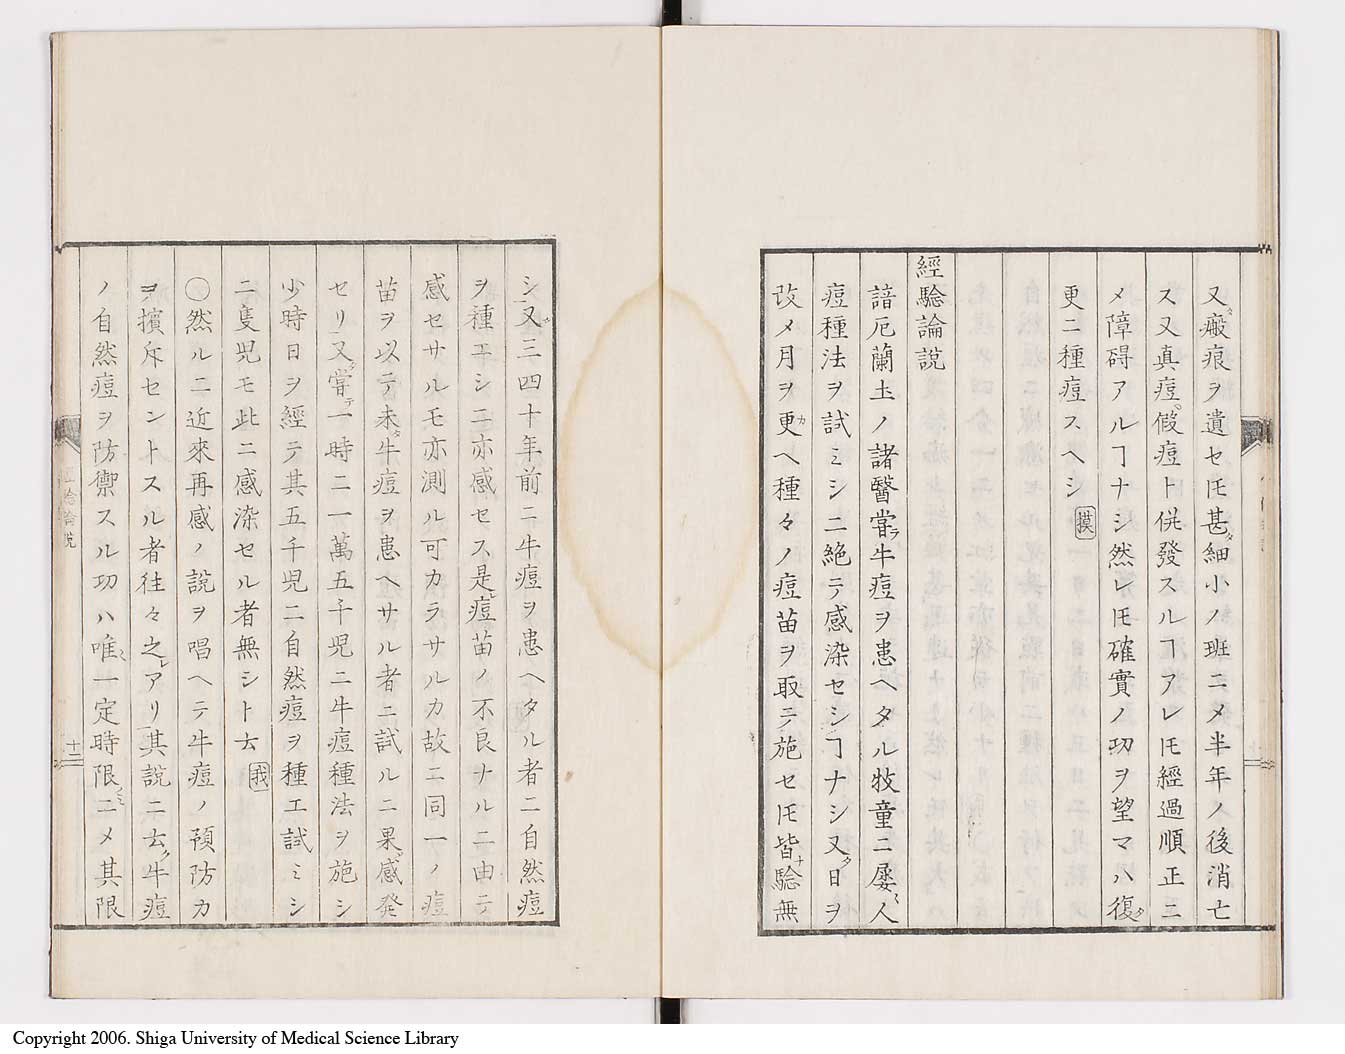 又瘢痕ヲ遺セ𪜈甚タ細小ノ班ニメ半年ノ後消亡
ス又真痘假痘ト併發スルヿアレ𪜈經過順正ニ
メ障碍アルヿナシ然レ𪜈確實ノ功ヲ望マハ復タ
更ニ種痘スヘシ 摸
經驗論說
諳厄蘭土ノ諸醫嘗テ牛痘ヲ患ヘタル牧童ニ屡ミ人
痘種法ヲ試ミシニ絕テ感染セシヿナシ又タ日ヲ
改メ月ヲ更カヘ種々ノ痘苗ヲ取テ施セ𪜈皆ナ驗無
シ又タ三四十年前ニ牛痘ヲ患ヘタル者ニ自然痘
ヲ種エシニ亦感セス是レ痘苗ノ不良ナルニ由テ
感セサルモ亦測ル可カラサルカ故ニ同一ノ痘
苗ヲ以テ未タ牛痘ヲ患ヘサル者ニ試ルニ果シ感發
セリ又タ嘗テ一時ニ一萬五千児ニ牛痘種法ヲ施シ
少時日ヲ經テ其五千児ニ自然痘ヲ種エ試ミシ
ニ隻児モ此ニ感染セル者無シト云 我
○然ルニ近來再感ノ說ヲ唱ヘテ牛痘ノ預防力
ヲ擯斥セントスル者往々之レアリ其說ニ云ク牛痘
ノ自然痘ヲ防禦スル功ハ唯タ一定時限ニメ其限
經驗論說
十二
Copyright 2006. Shiga University of Medical Science Library